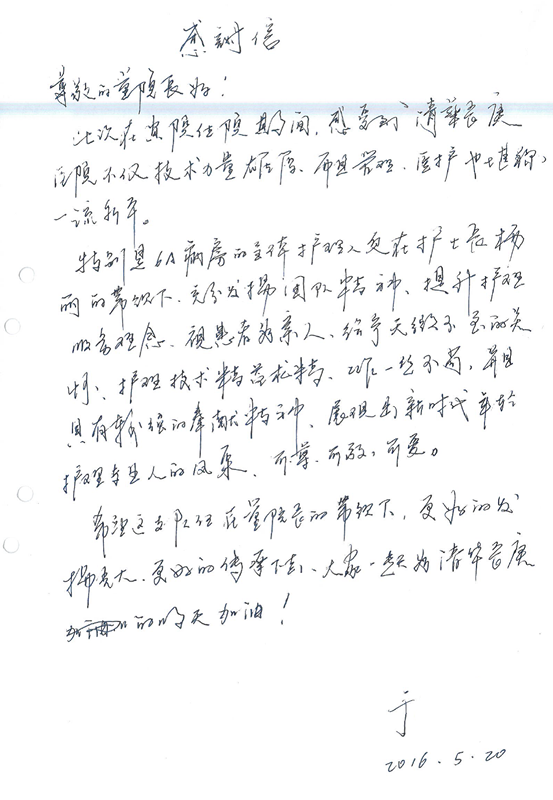 感謝信
尊敬的董院长好！
此次在贵院住院期间，感受到清華长庚
医院不仅技术力量雄厚、而且管理、医护也堪称
一流水平。
特别是6A病房的全体护理人员在护士长杨
丽的带领下、充分发揚团队精神、提升护理
服务理念、视患者为亲人、给予无微不至的关
怀、护理技术精益求精、工作一丝不苟，并且
具有较强的奉献精神、展现出新时代年轻
护理专业人的风采、可尊、可敬、可爱。
希望这支队伍在董院长的带领下，更好的发
揚光大、更好的传承下去、大家一起为清华长庚
的明天加油！
于
2016.5.20